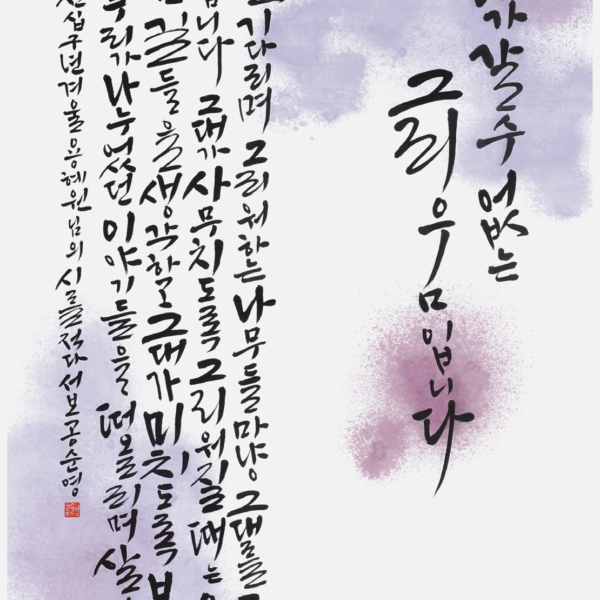 가 갈 수 없는
그리움입니다
기다리며 그리워하는 나무들마냥 그대를
니다 그대가 사무치도록 그리워질 때는
길들을 생각하고 그대가 미치도록 보
우리가 나누었던 이야기들을 떠올리며
십구년 겨울 용혜원님의 시를 적다 서보 공순영